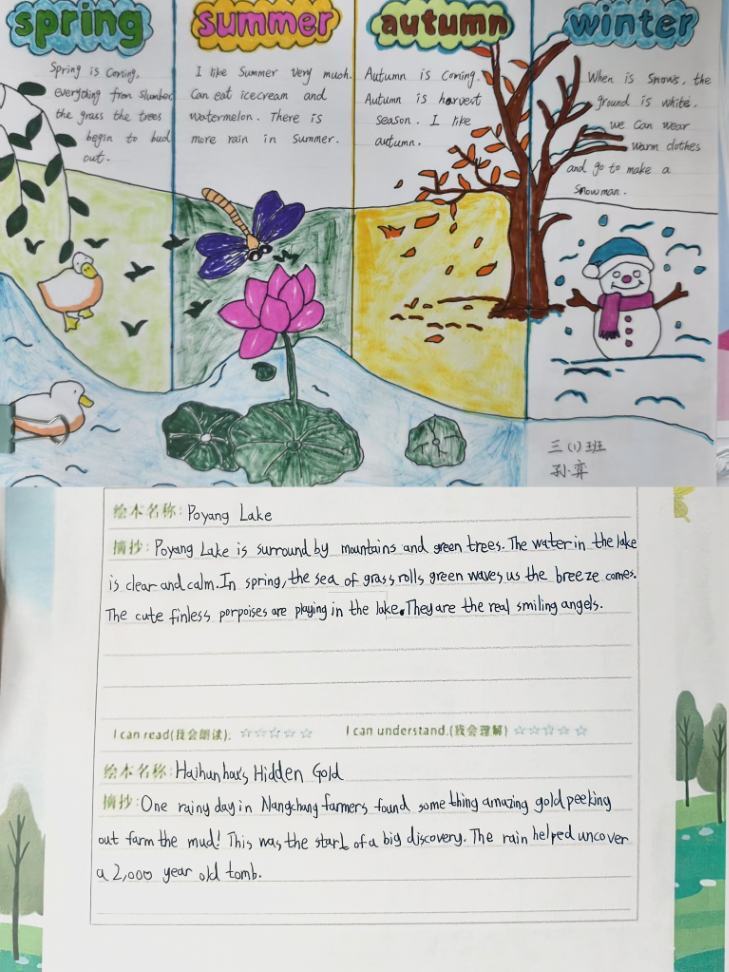 spring
Spring is coming,
everything from slumber
the grass the trees
begin to bud
out.
summer
I like Summer very much.
Can eat icecream and
watermelon. There is
more rain in Summer.
autumn
Autumn is coming.
Autumn is harvest
season. I like
autumn.
winter
When is snows, the
ground is white.
we can wear
warm clothes
and go to make a
snowman.
三(1)班
孙弈
绘本名称: Poyang Lake
摘抄: Poyang Lake is surround by mountains and green trees. The water in the lake
is clear and calm. In spring, the sea of grass rolls green waves us the breeze comes.
The cute finless porpoises are playing in the lake. They are the real smiling angels.
I can read(我会朗读): ☆☆☆☆☆ I can understand.(我会理解) ☆☆☆☆☆
绘本名称: Haihunhou's Hidden Gold
摘抄: One rainy day in Nangchang farmers found something amazing gold peeking
out farm the mud! This was the start of a big discovery. The rain helped uncover
a 2,000 year old tomb.